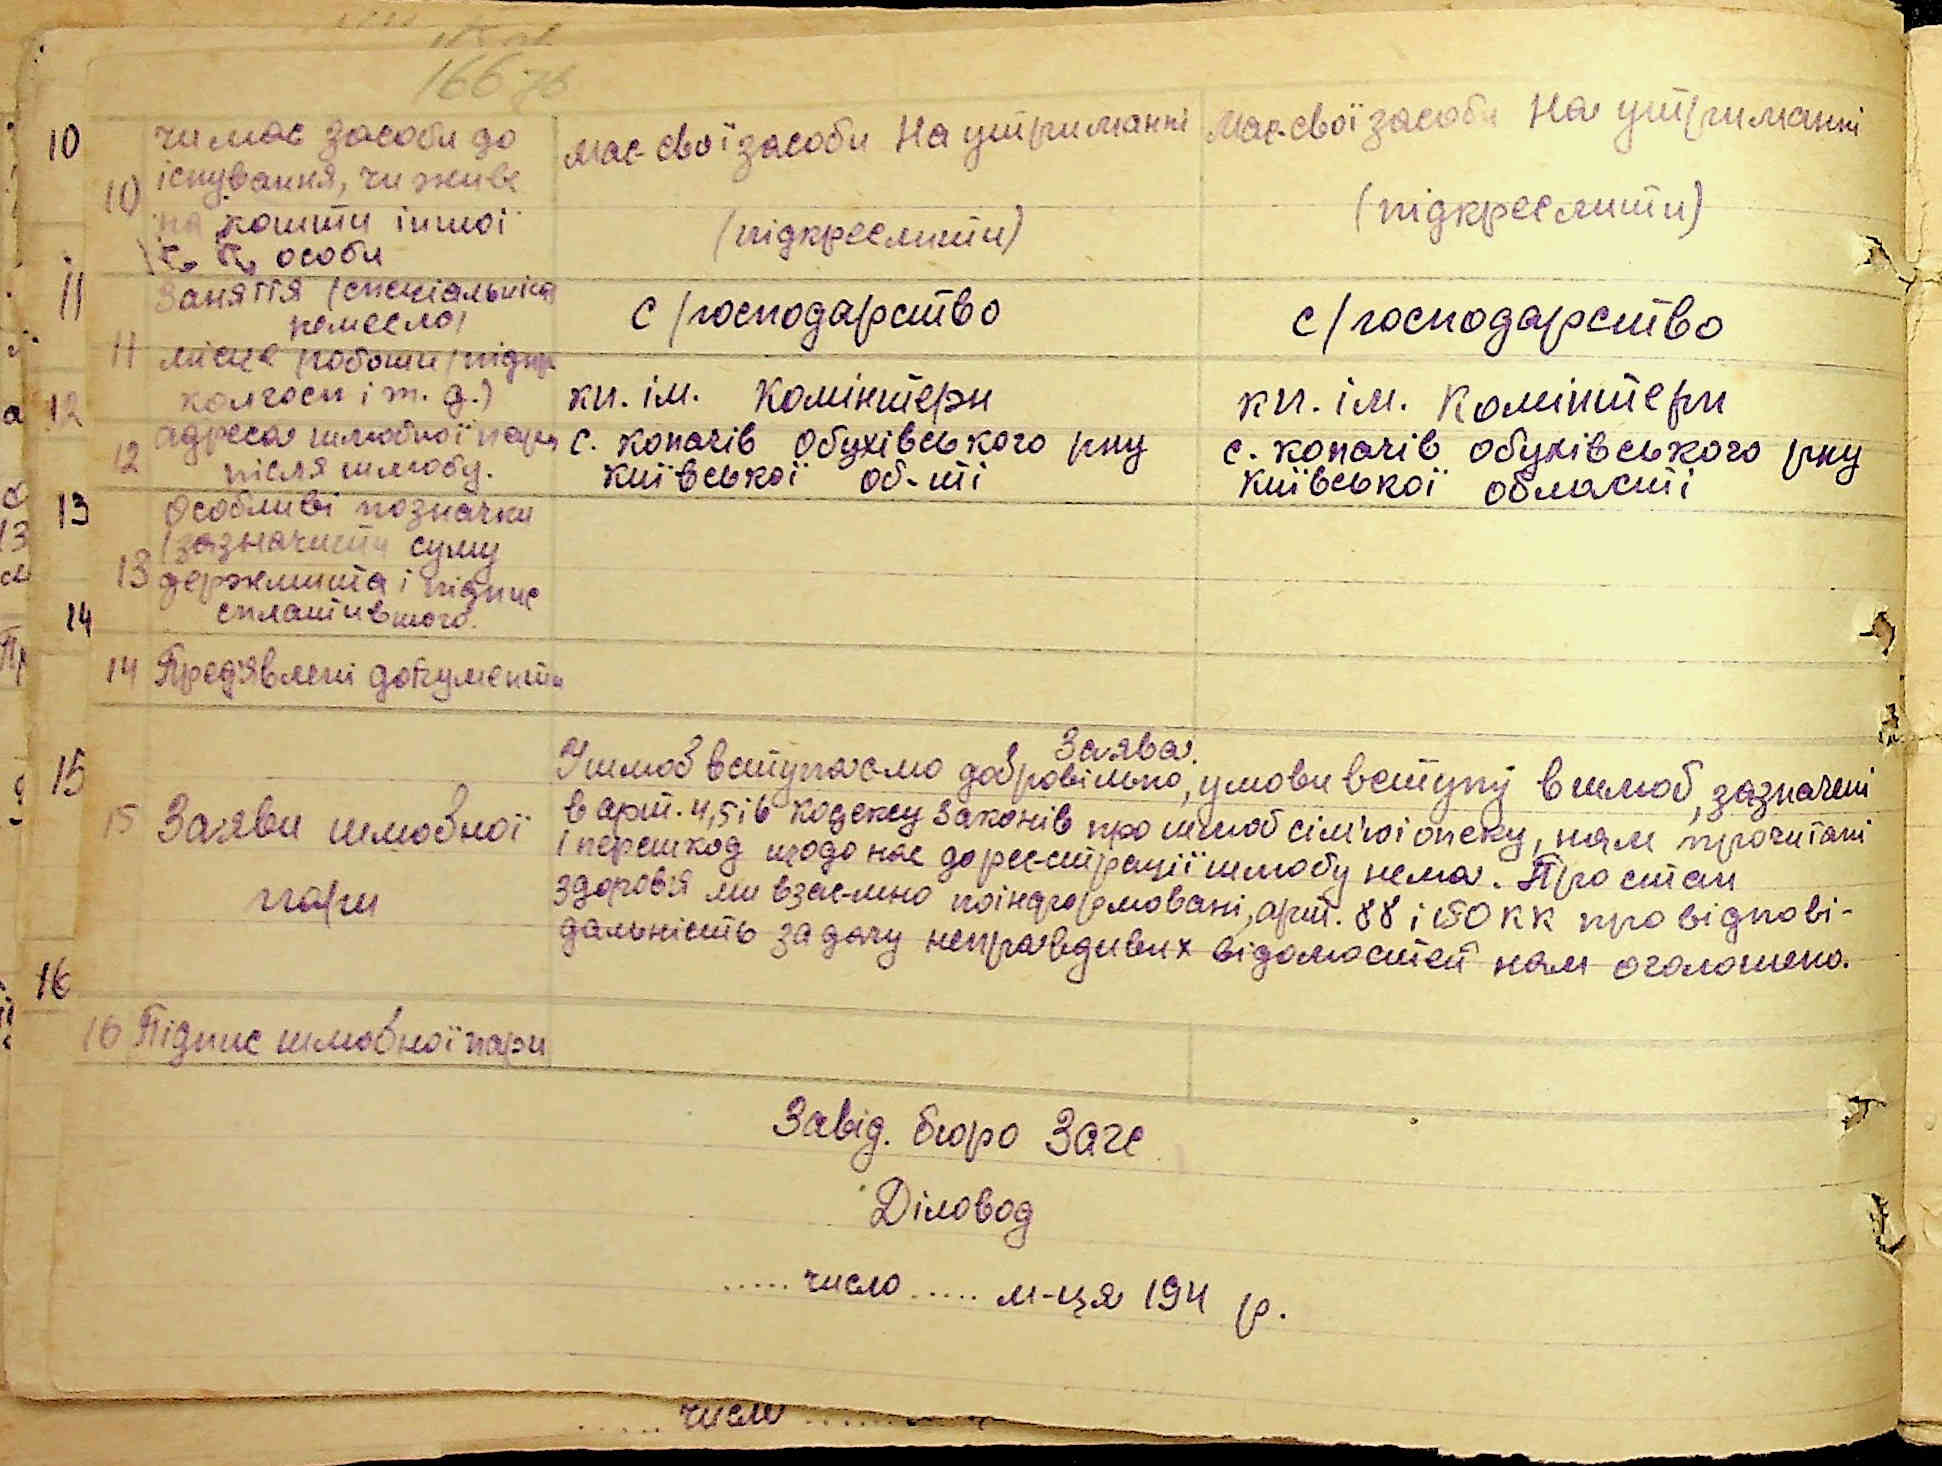 166 зв
10 чи має засоби до
існування, чи живе
на кошти іншої
особи
має свої засоби На утриманні
(підкреслити)
Має свої засоби На утриманні
(підкреслити)
11 Заняття (спеціальність
ремесло)
с/господарство
с/господарство
11 місце роботи (підпр.
колгосп і т. д.)
кп. ім. Комінтерн
кп. ім. Комінтерн
12 адреса шлюбної пари
після шлюбу.
с. Копачів Обухівського рну
Київської об-ті
с. Копачів Обухівського рну
Київської області
13 Особливі позначки
(зазначити суму
держмита і підпис
сплатившого.
14 Пред'явлені документи
15 Заяви шлюбної
пари
Заява.
У шлюб вступаємо добровільно, умови вступу в шлюб, зазначені
в арт. 4, 5 і 6 кодексу Законів про шлюб сім'ю і опеку, нам прочитані
і перешкод щодо нас до реєстрації шлюбу нема. Про стан
здоровія ми взаємно поінформовані, арт. 88 і 150 КК про відпові-
дальність за дачу неправдивих відомостей нам оголошено.
16 Підпис шлюбної пари
Завід. бюро Загс
Діловод
..... число ..... м-ця 194 р.
..... число .....
10
11
12
13
14
15
16